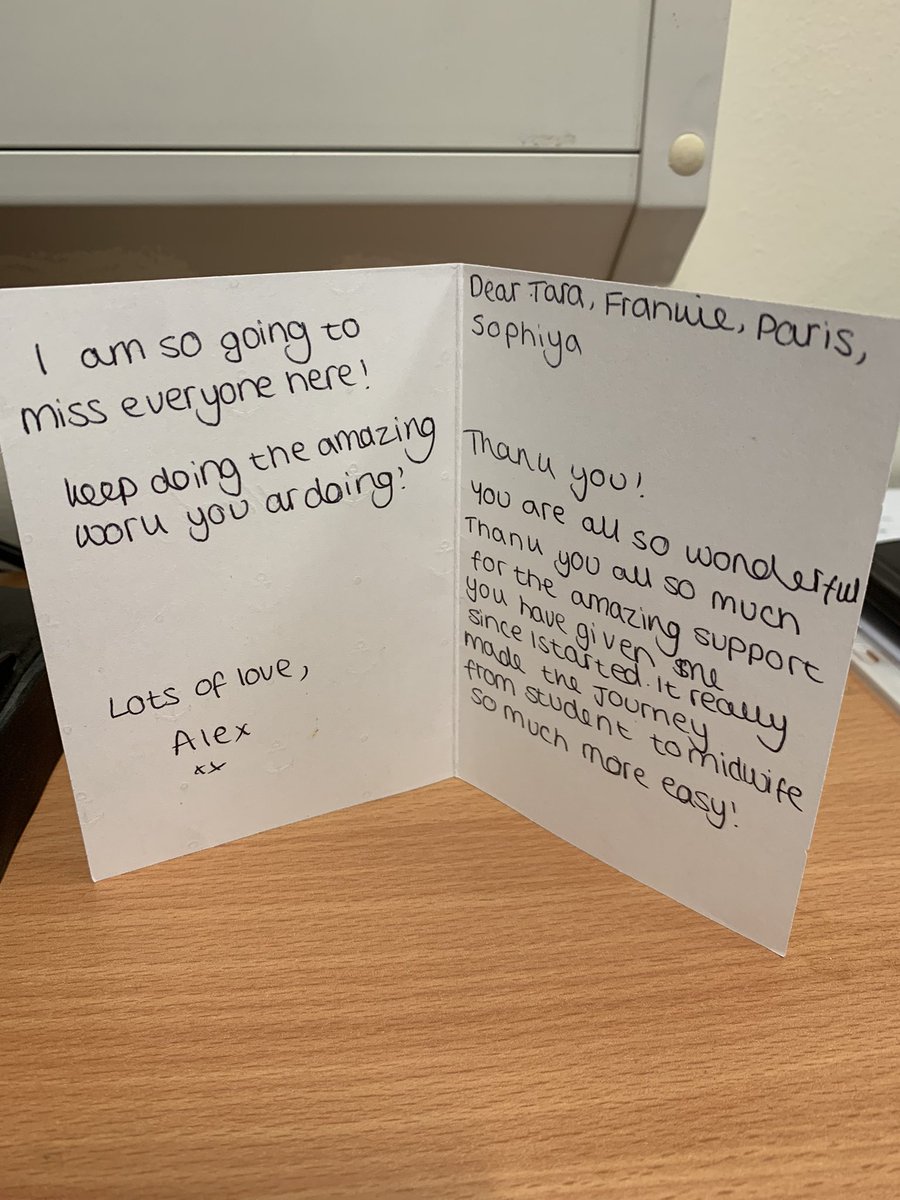 Dear Tara, Frankie, Paris,
Sophiya
Thank you!
you are all so wonderful
Thank you all so much
for the amazing support
you have given me
since I started. It really
made the journey
from student to midwife
so much more easy!
I am so going to
miss everyone here!
keep doing the amazing
work you ar doing!
Lots of love,
Alex
xx